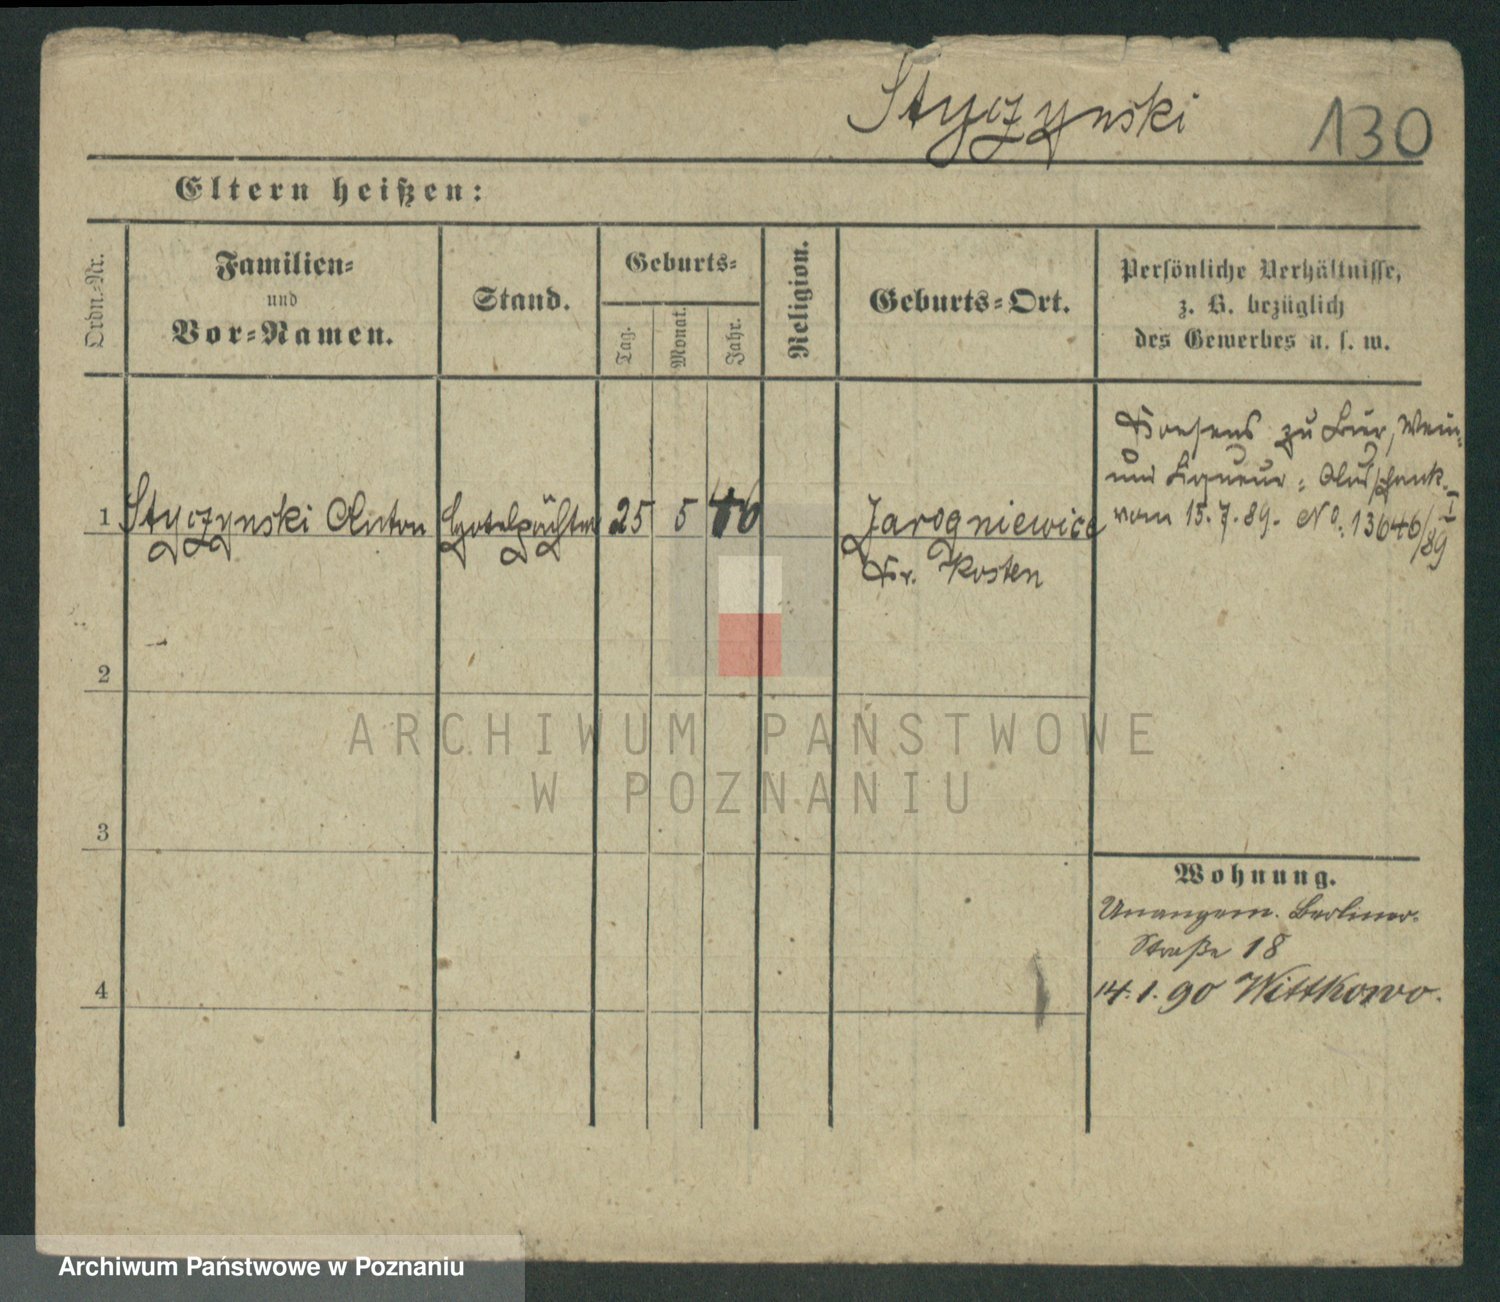 Styczynski 130
Eltern heißen:
Ordn.-Nr.
Familien-
und
Vor-Namen.
Stand.
Geburts-
Tag.
Monat.
Jahr.
Religion.
Geburts-Ort.
Persönliche Verhältnisse,
z. B. bezüglich
des Gewerbes u. s. w.
1 Styczynski Anton Hotelpächter 25 5 46 Jarogniewice
Kr. Kosten
Konsens zu Bier, Wein-
und Liqueur-Ausschank.
vom 15.7.89. No. 13646/89 I
2
3
4
Wohnung.
Unangem. Berliner-
Straße 18
14.1.90 Wittkowo.
ARCHIWUM PAŃSTWOWE
W POZNANIU
Archiwum Państwowe w Poznaniu